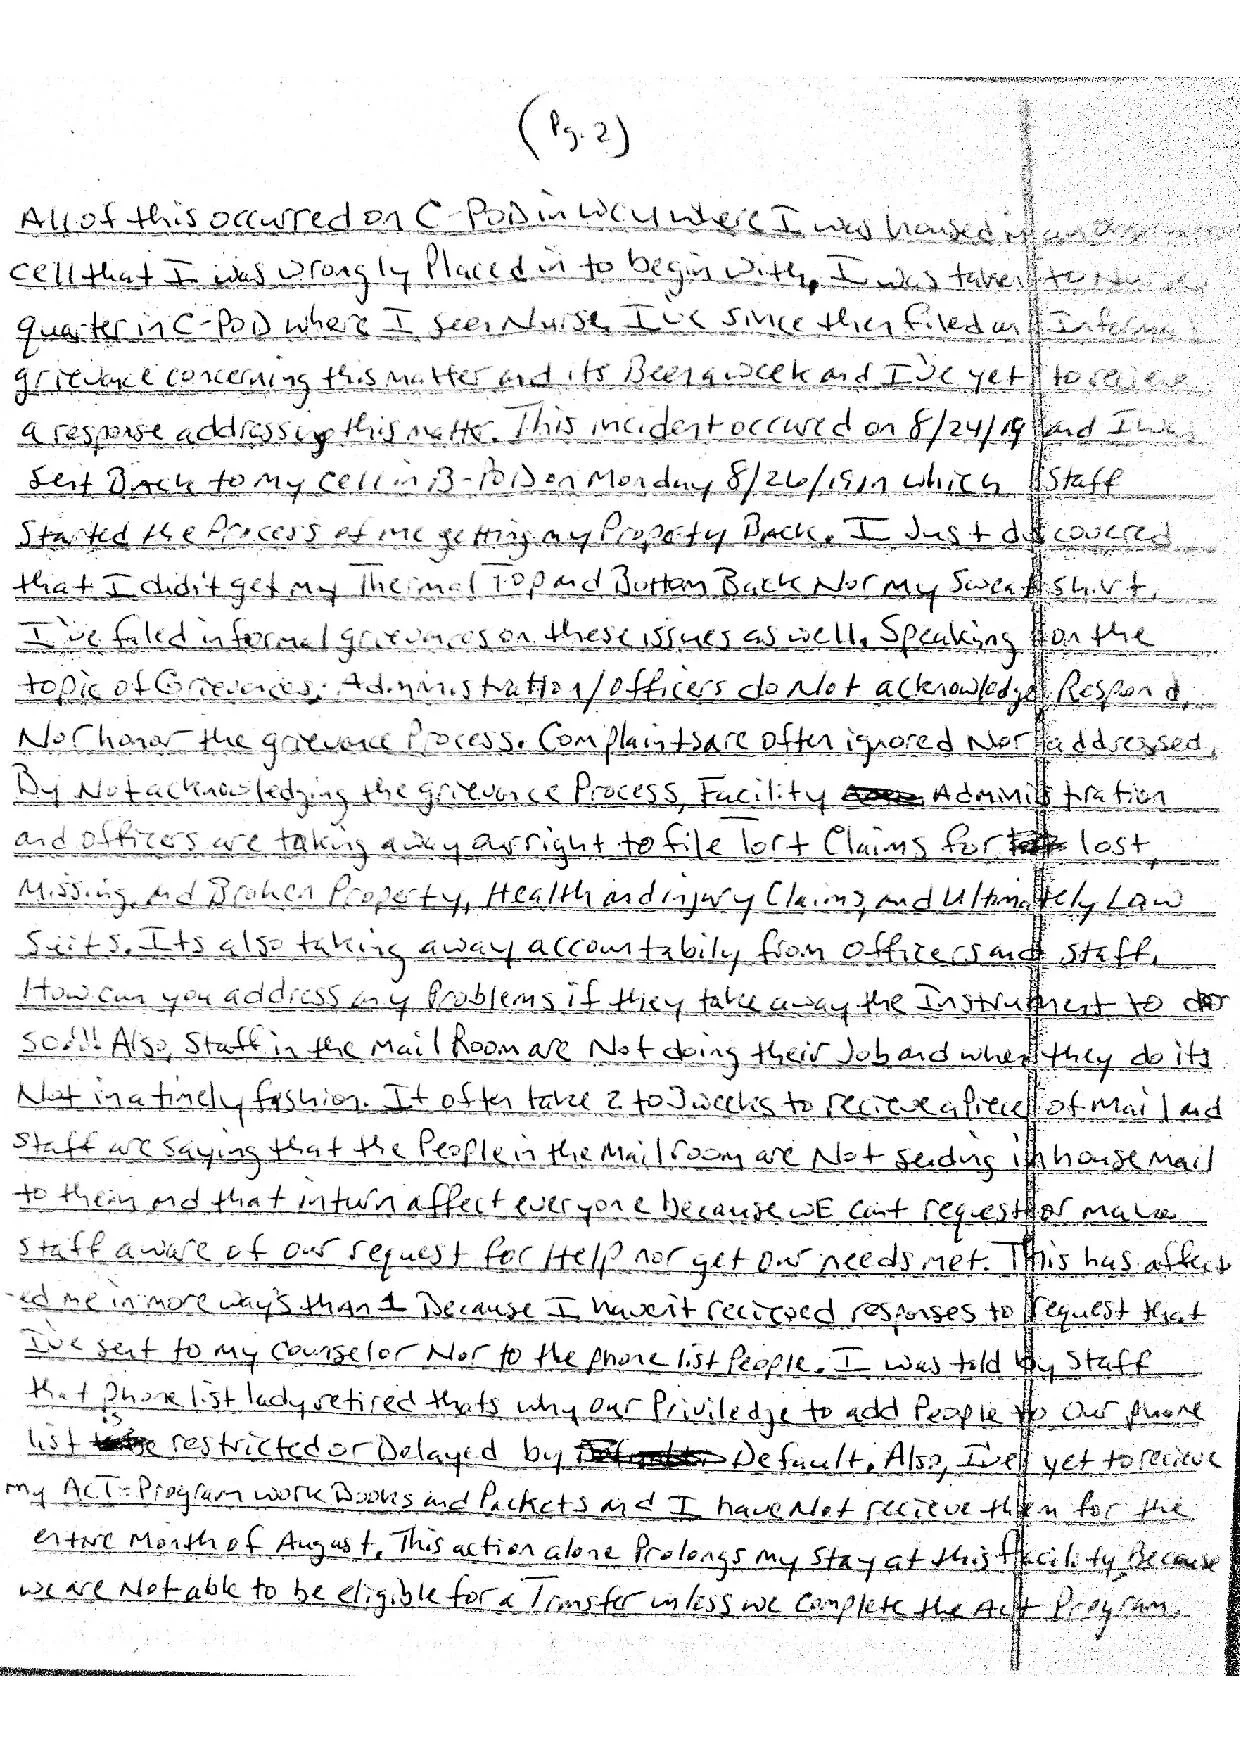 (Pg. 2)
All of this occurred on C-POD in WCU where I was housed in an
cell that I was wrongly Placed in to begin with, I was taken to
quarter in C-POD where I seen Nurse, I've since then filed an Informal
grievance concerning this matter and its Been a week and I've yet to recieve
a response addressing this matter. This incident occured on 8/24/19 and I was
sent Back to my cell in B-POD on Monday 8/26/19 in which Staff
Started the Process of me getting my Property Back. I Just discovered
that I didn't get my Thermal Top and Buttom Back Nor my Sweatshirt.
I've filed informal grievances on these issues as well. Speaking on the
topic of Grievances; Administration/Officers do Not acknowledge, Respond,
Nor honor the grievance Process. Complaints are often ignored Nor addressed,
By Not acknowledging the grievance Process, Facility Administration
and officers are taking away our right to file Tort Claims for lost,
Missing, and Broken Property, Health and injury Claims, and Ultimately Law
Suits. Its also taking away accountabily from officers and staff.
How can you address any Problems if they take away the Instrument to do
so!!! Also, Staff in the Mail Room are Not doing their Job and when they do its
Not in a timely fashion. It often take 2 to 3 weeks to recieve a Piece of Mail and
staff are saying that the People in the Mail room are Not sending in house Mail
to them and that in turn affect everyone because WE can't request or make
staff aware of our request for Help nor get our needs met. This has affect
-ed me in more way's than 1 Because I haven't recieved responses to request that
I've sent to my Counselor Nor to the phone list People. I was told by Staff
that phone list lady retired thats why our Priviledge to add People to our phone
list is restricted or Delayed by Default. Also, I've yet to recieve
my ACT-Program work Books and Packets and I have Not recieve them for the
entire Month of August. This action alone Prolongs my stay at this facility, Because
we are Not able to be eligible for a Transfer unless we complete the Act Program.